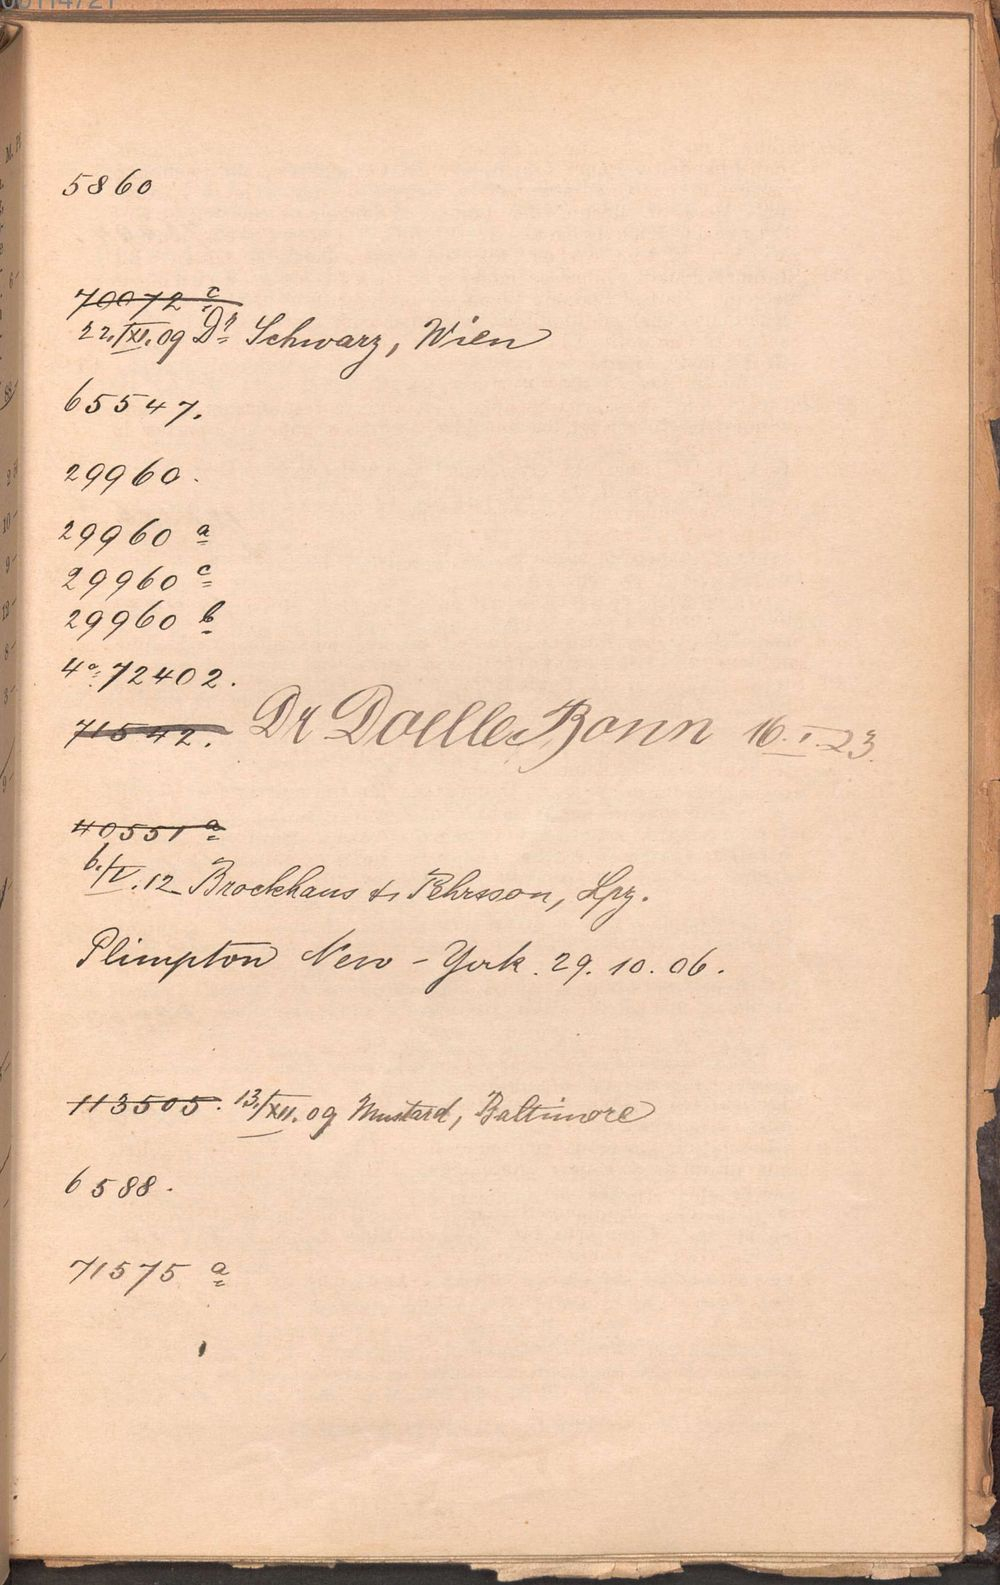 5860
70072 c
22./XI. 09 Dr Schwarz, Wien
65547.
29960.
29960 a
29960 c
29960 b
4o 72402.
71542. Dr Doelle Bonn 16.I.23.
40551 a
6./V. 12 Brockhaus & Pehrsson, Lpz.
Plimpton New-York. 29. 10. 06.
113505. 13./XII. 09 Mustard, Baltimore
6588.
71575 a